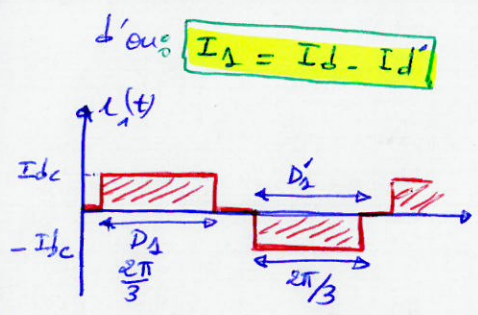 d'où:
I1 = Id - Id'
i1(t)
Idc
D1'
- Idc
D1
2π/3
2π/3